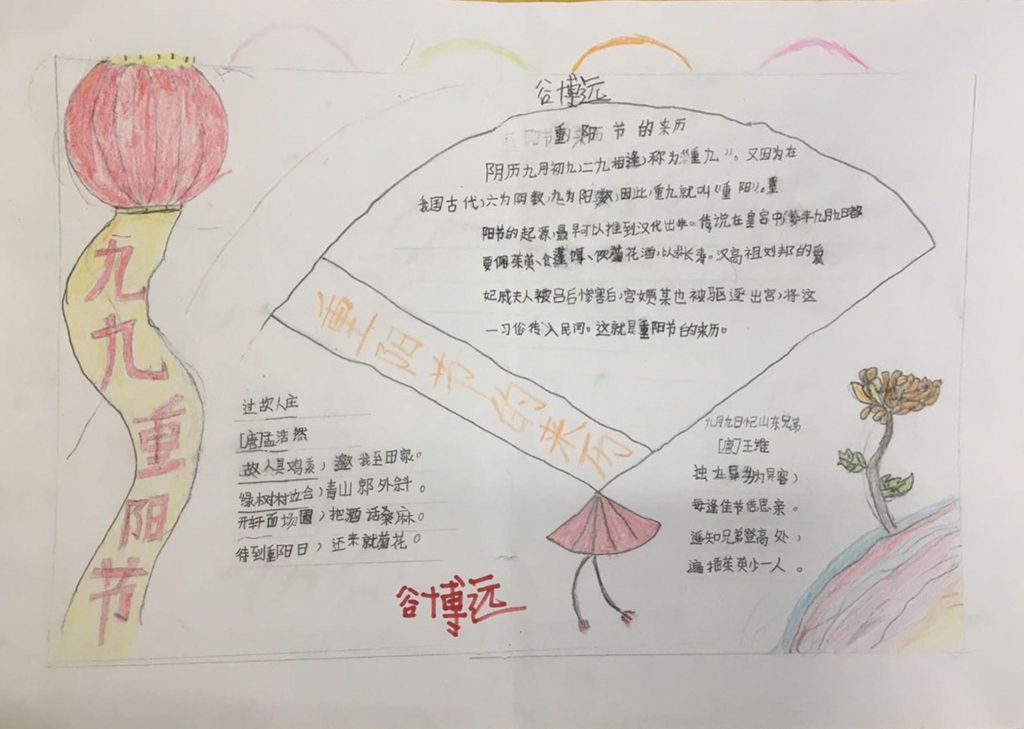 九九重阳节
谷博远
重阳节的来历
阴历九月初九，二九相逢，称为“重九”。又因为在
我国古代，六为阴数，九为阳数，因此，重九就叫“重阳”。重
阳节的起源，最早可以推到汉化出来。传说在皇宫中，每年九月九日都
要佩茱萸、食蓬饵、饮菊花酒，以求长寿。汉高祖刘邦的爱
妃戚夫人被吕后惨害后，宫女贾某也被驱逐出宫，将这
一习俗传入民间。这就是重阳节的来历。
重阳节的来历
过故人庄
[唐]孟浩然
故人具鸡黍，邀我至田家。
绿树村边合，青山郭外斜。
开轩面场圃，把酒话桑麻。
待到重阳日，还来就菊花。
谷博远
九月九日忆山东兄弟
[唐]王维
独在异乡为异客，
每逢佳节倍思亲。
遥知兄弟登高处，
遍插茱萸少一人。